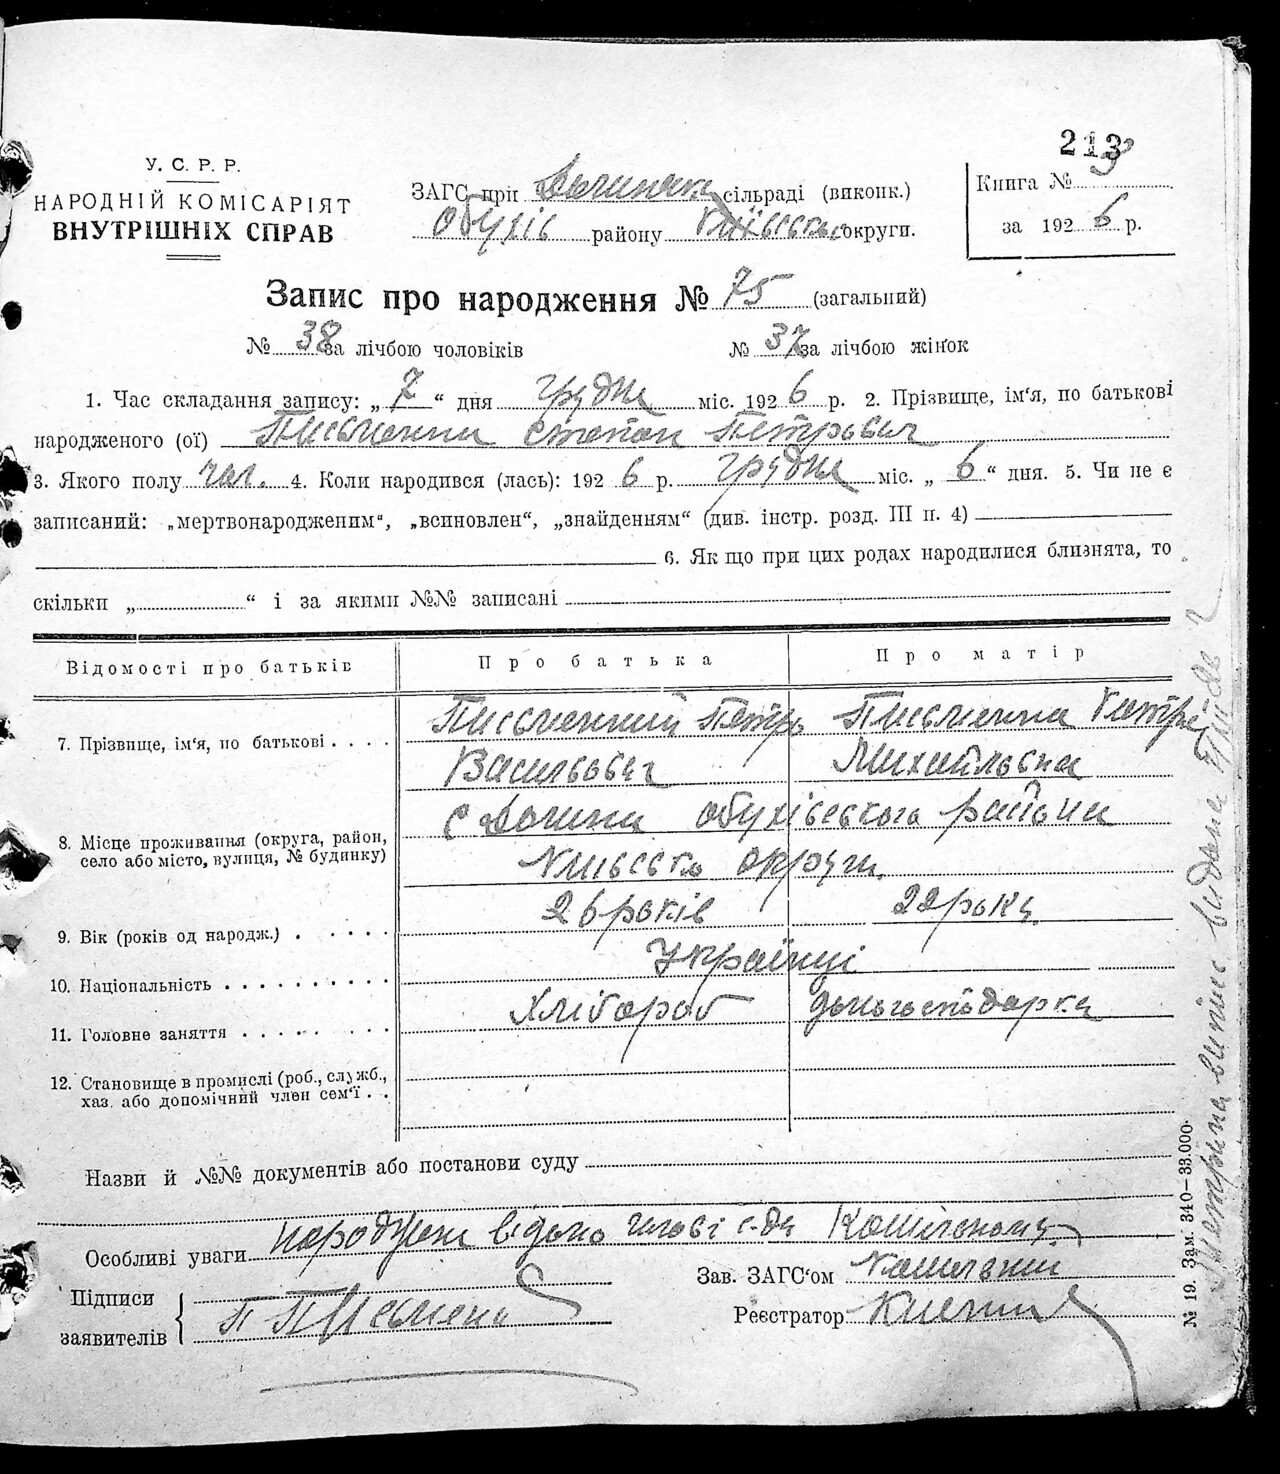 213
У. С. Р. Р.
НАРОДНІЙ КОМІСАРІЯТ
ВНУТРІШНІХ СПРАВ
ЗАГС при Долинск сільраді (виконк.)
Обухів району Київської округи.
Книга № 3
за 1926 р.
Запис про народження № 75 (загальний)
№ 38 за лічбою чоловіків № 37 за лічбою жінок
1. Час складання запису: „ 7 “ дня грудня міс. 1926 р. 2. Прізвище, ім‘я, по батькові
народженого (ої) Письменни Степан Петрович
3. Якого полу чол. 4. Коли народився (лась): 1926 р. грудня міс. „ 6 “ дня. 5. Чи не є
записаний: „мертвонародженим“, „всиновлен“, „знайденням“ (див. інстр. розд. III п. 4)
6. Як що при цих родах народилися близнята, то
скільки „ “ і за якими №№ записані
Відомості про батьків Про батька Про матір
7. Прізвище, ім‘я, по батькові Письменний Петрь Васильович Письменна Катря Михайловна
8. Місце проживання (округа, район,
село або місто, вулиця, № будинку)
с Долина Обухівського района
Київсько округи.
9. Вік (років од народж.) 26 років 22 роки
10. Національність Українці
11. Головне заняття Хлібороб домогосподарка
12. Становище в промислі (роб., служб.,
хаз. або допомічний член сем‘ї
Назви й №№ документів або постанови суду
Особливі уваги народжен відомо голові с-ди
Зав. ЗАГС‘ом
Підписи
заявителів П Письмени
Реєстратор
№ 19. Зам. 340—33.000.
Метрична випис видана